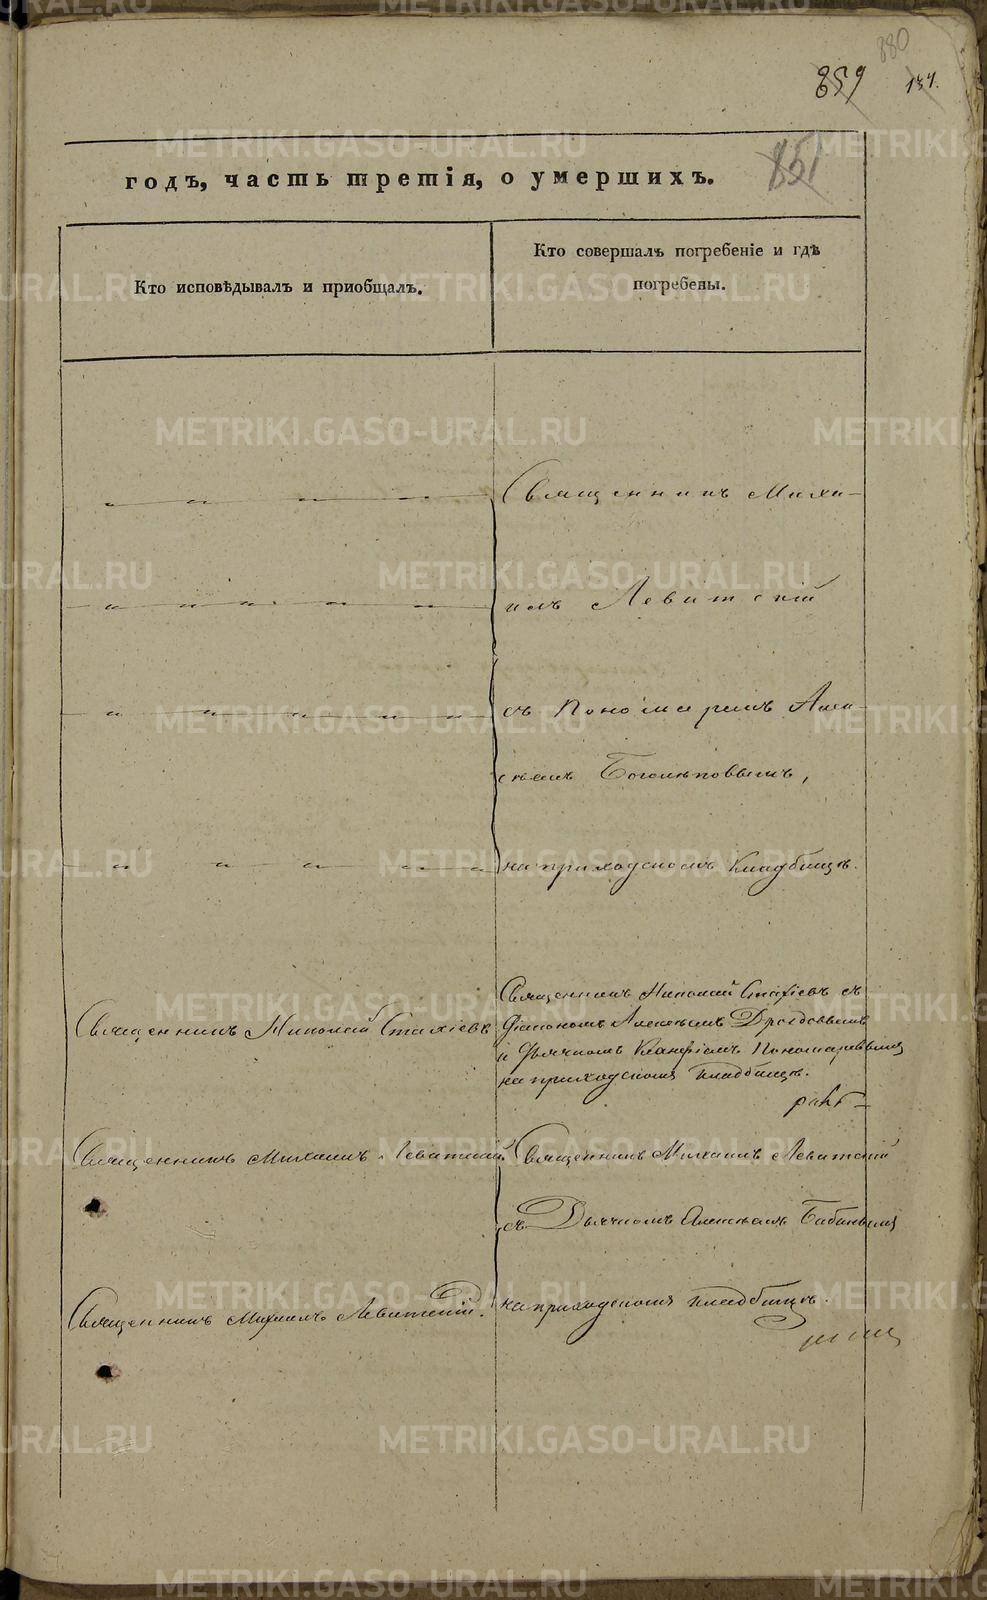 880
859
134.
851
годъ, часть третія, о умершихъ.
Кто исповѣдывалъ и приобщалъ.
Кто совершалъ погребеніе и гдѣ
погребены.
Священникъ Миха-
илъ Левитскій
съ Пономаремъ Алек-
сѣемъ Боголѣповымъ,
на приходскомъ кладбищѣ.
Священникъ Николай Стахіевъ
Священникъ Николай Стахіевъ съ
Діакономъ Алексѣемъ Дроздовымъ
и Дьячкомъ Пономаревымъ
на приходскомъ кладбищѣ.
Священникъ Михаилъ Левитскій.
Священникъ Михаилъ Левитскій
съ Дьячкомъ Алексѣемъ Бабинымъ
Священникъ Михаилъ Левитскій.
на приходскомъ кладбищѣ.
METRIKI.GASO-URAL.RU